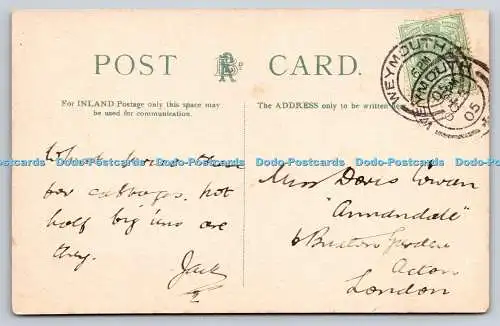 POST CARD.
For INLAND Postage only this space may
be used for communication.
The ADDRESS only to be written
WEYMOUTH
WEYMOUTH
05
What
for cabbages, not
half big 'uns are
they.
Jack
Miss Doris Cowan
"Annandale"
6 Buxton Gardens
Acton
London
Dodo-Postcards Dodo-Postcards Dodo-Postcards Dodo-Postcards Dodo-Postcards Dodo-Postcards